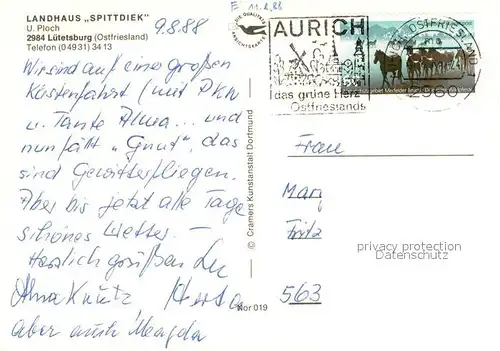 LANDHAUS „SPITTDIEK"
U. Ploch
2984 Lütetsburg (Ostfriesland)
Telefon (04931) 3413
9.8.88
E 11.8.88
DIE QUALITÄTS
ANSICHTSKARTE
AURICH
das grüne Herz
Ostfrieslands
OSTFRIESLAND
2960
Wir sind auf einer großen
Küstenfahrt (mit PKW
u. Tante Alma ... und
nun fällt „Gnut", das
sind Gewitterfliegen.
Aber bis jetzt alle Tage
schönes Wetter. —
Herzlich grüßen
Herta
aber auch Magda
© Cramers Kunstanstalt Dortmund
Nor 019
Frau
Mary
Fritz
563
privacy protection
Datenschutz